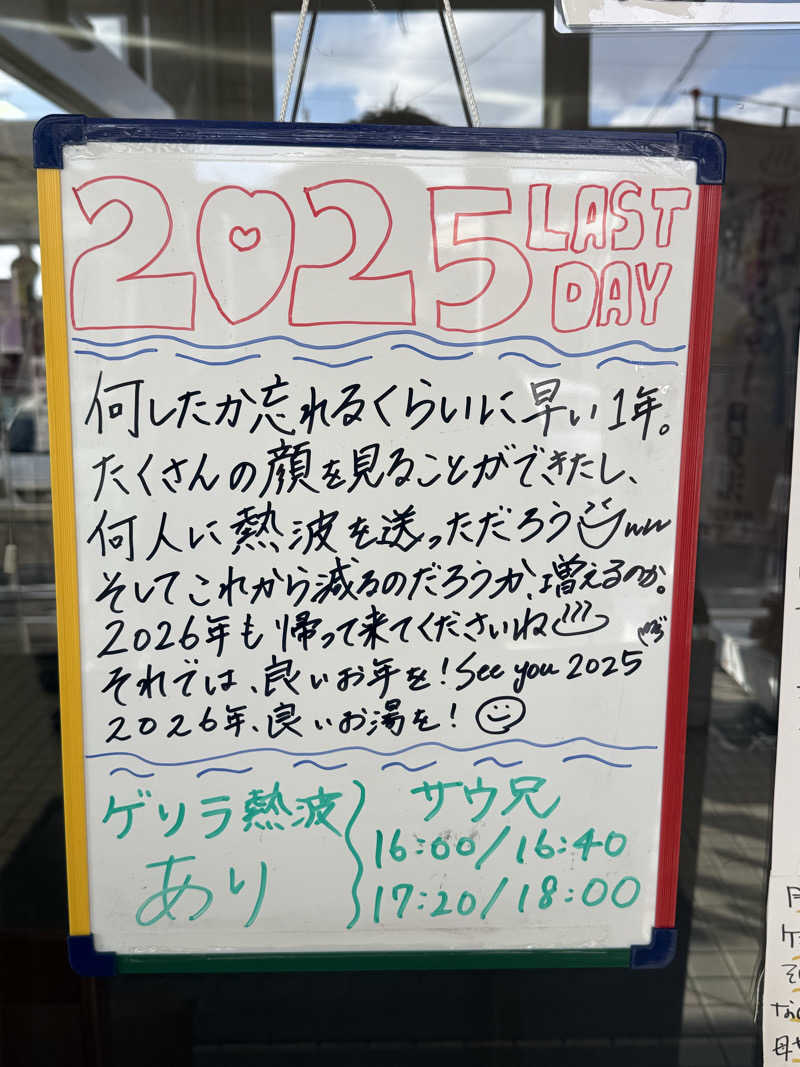 2025 LAST DAY
何したか忘れるくらいに早い1年。
たくさんの顔を見ることができたし、
何人に熱波を送っただろうwww
そしてこれから減るのだろうか、増えるのか。
2026年も帰って来てくださいね
それでは、良いお年を!See you 2025
2026年、良いお湯を!
ゲリラ熱波
あり
サウ兄
16:00/16:40
17:20/18:00